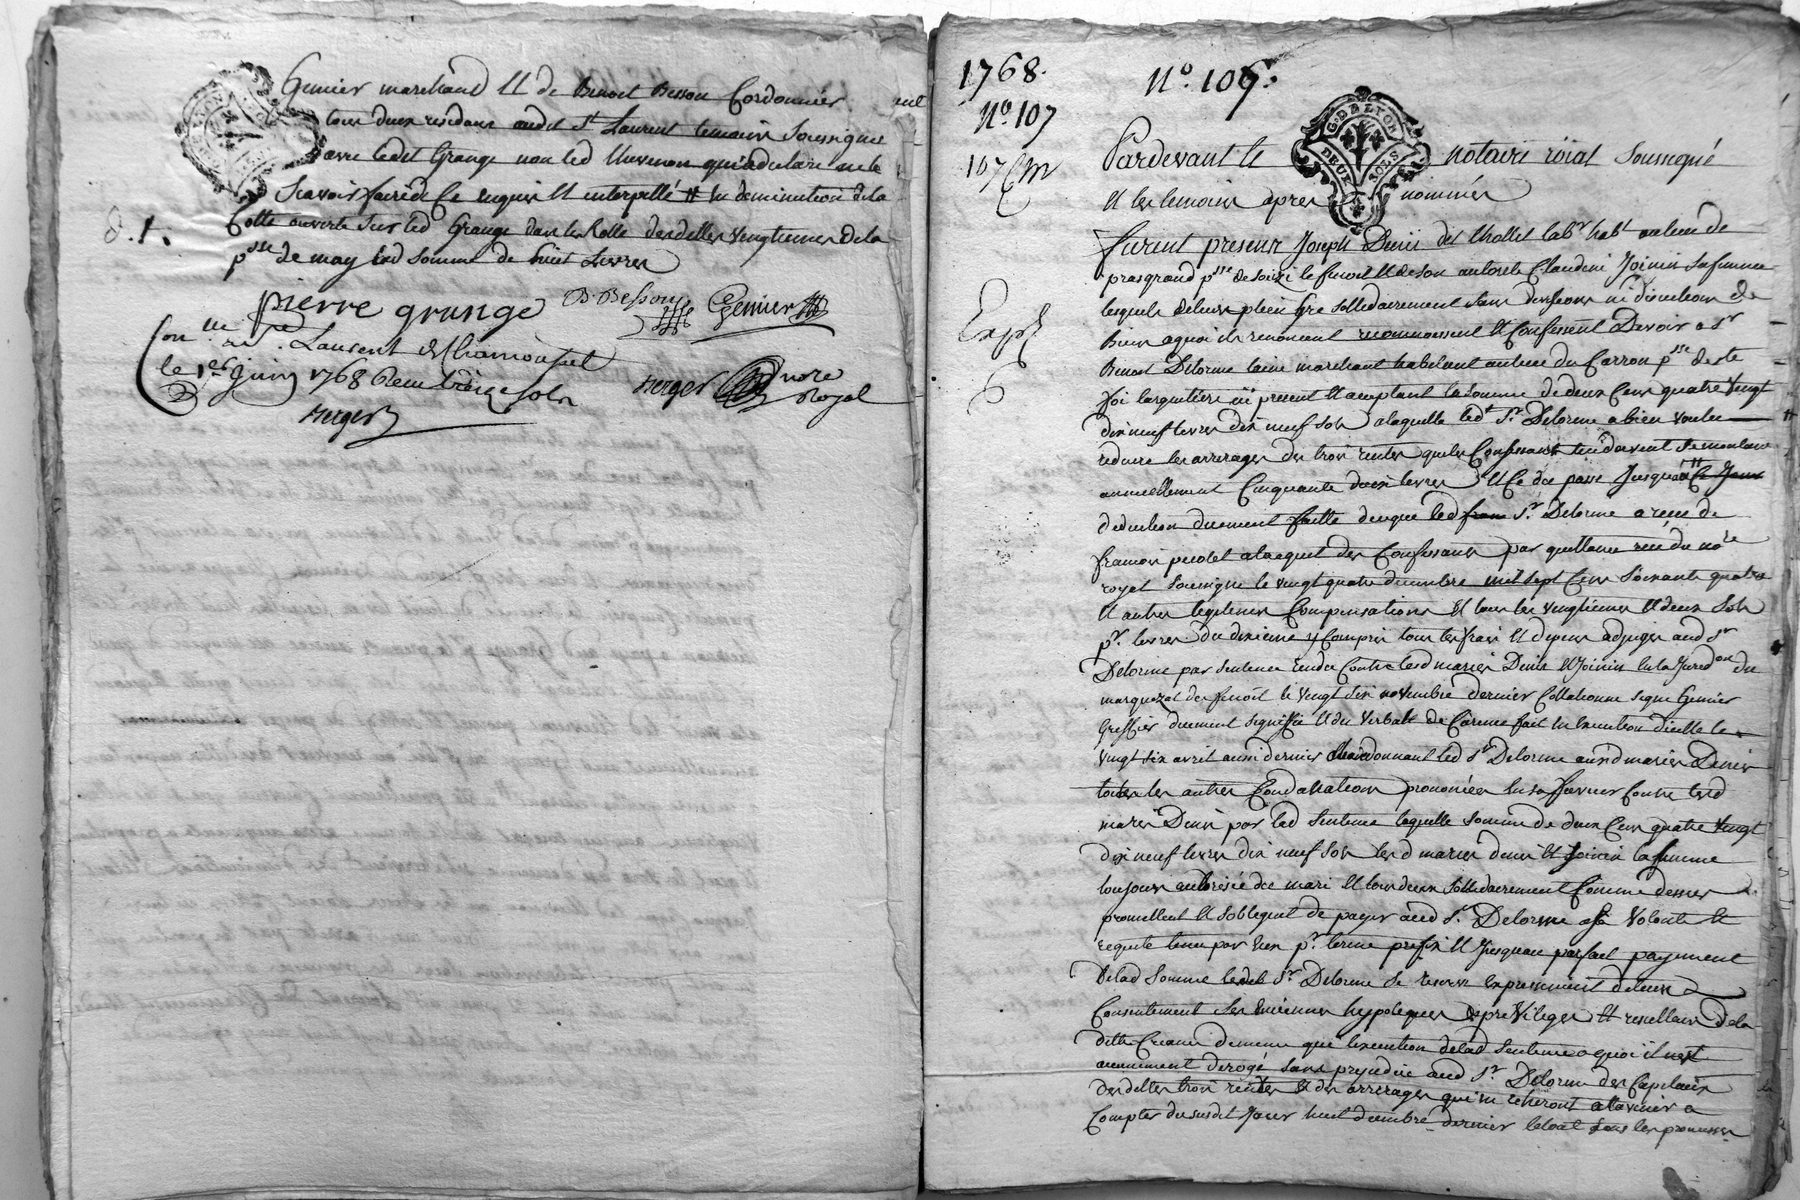 Genier marchand Et de Benoit Besson Cordonnier
tous deux residans audit St Laurent temoins Soussignes
avec ledit Grange non led Thevenon qui a declaré ne le
Scavoir faire de Ce enquis Et interpellé # en deminution de la
Cotte ouverte sur led Grange dans les Rolle desdittes vingtiemes de la
psse de may lad somme de huit Livres
8. 1.
pierre grange
B Besson
Genier
Con
St Laurent de Chamousset
le 1er Juin 1768 Reçu treize sols
Berger
Berger nore
Royal
1768.
No. 107
107
No. 106.
G. D. LYON
DEUX SOLS
Pardevant le notaire roial soussigné
Et les temoins apres nommés
furent presens Joseph Denis dit Thollet labr habt au lieu de
prasgrand psse de Souzi le Benoit Et de son autorité Claudine Joinin sa femme
lesquels de leurs plein gré sollidairement sans division ni discution de
Biens a quoi ils renoncent reconnoissent Et Confessent Devoir a Sr
Benoit Delorme laine marchand habitant au lieu du Carron psse de Ste
foi largentiere ici present Et acceptant la somme de deux Cens quatre Vingt
dix neuf livres dix neuf sols a laquelle ledt Sr Delorme a bien voulu
reduire les arrerages des trois rentes que les Confessants lui doivent se montant
annuellement Cinquante deux livres Et Ce du passé Jusqu'a Ce Jour
deduction duement faitte de ce que led Sr Delorme a recu de
francois perolet a lacquit des Confessants par quittance recue du nore
royal soussigné le vingt quatre decembre mil sept Cens Soixante quatre
Et autres legitimes Compensations Et tous les vingtiemes Et deux Sols
pr livres du dixieme y Compris tous les frais Et depens adjugés aud Sr
Delorme par sentence rendue Contre lesd mariés Denis Et Joinin en la Juredon du
marquizat de Benoit le vingt six novembre dernier Collationné signé Genier
Greffier duement signiffié Et du Verbal de Carence fait en execution dicelle le
vingt six avril aussi dernier abandonnant led Sr Delorme auxd mariés Denis
toutes les autres Condamnations prononcées en sa faveur Contre lesd
mariés Denis par lad Sentence laquelle somme de deux Cens quatre Vingt
dix neuf livres dix neuf sols lesd mariés denis Et Joinin la femme
toujours autorisée de mari Et tous deux sollidairement Comme dessus
promettent Et s'obligent de payer aud Sr Delorme a sa Volonté Et
requete tenu par eux pr terme prefix Et Jusqu'au parfait payement
de lad Somme ledit Sr Delorme se reserve expressement de leurs
Consentement ses anciennes hypoteques Privileges Et
ditte Creance de meme que l'execution de lad sentence a quoi il n'est
aucunement derogé sans prejudice aud Sr Delorme des Capitaux
desdittes trois rentes Et des arrerages qui en echeront a l'avenir a
Compter du susdit Jour huit decembre dernier le tout sous les promesses